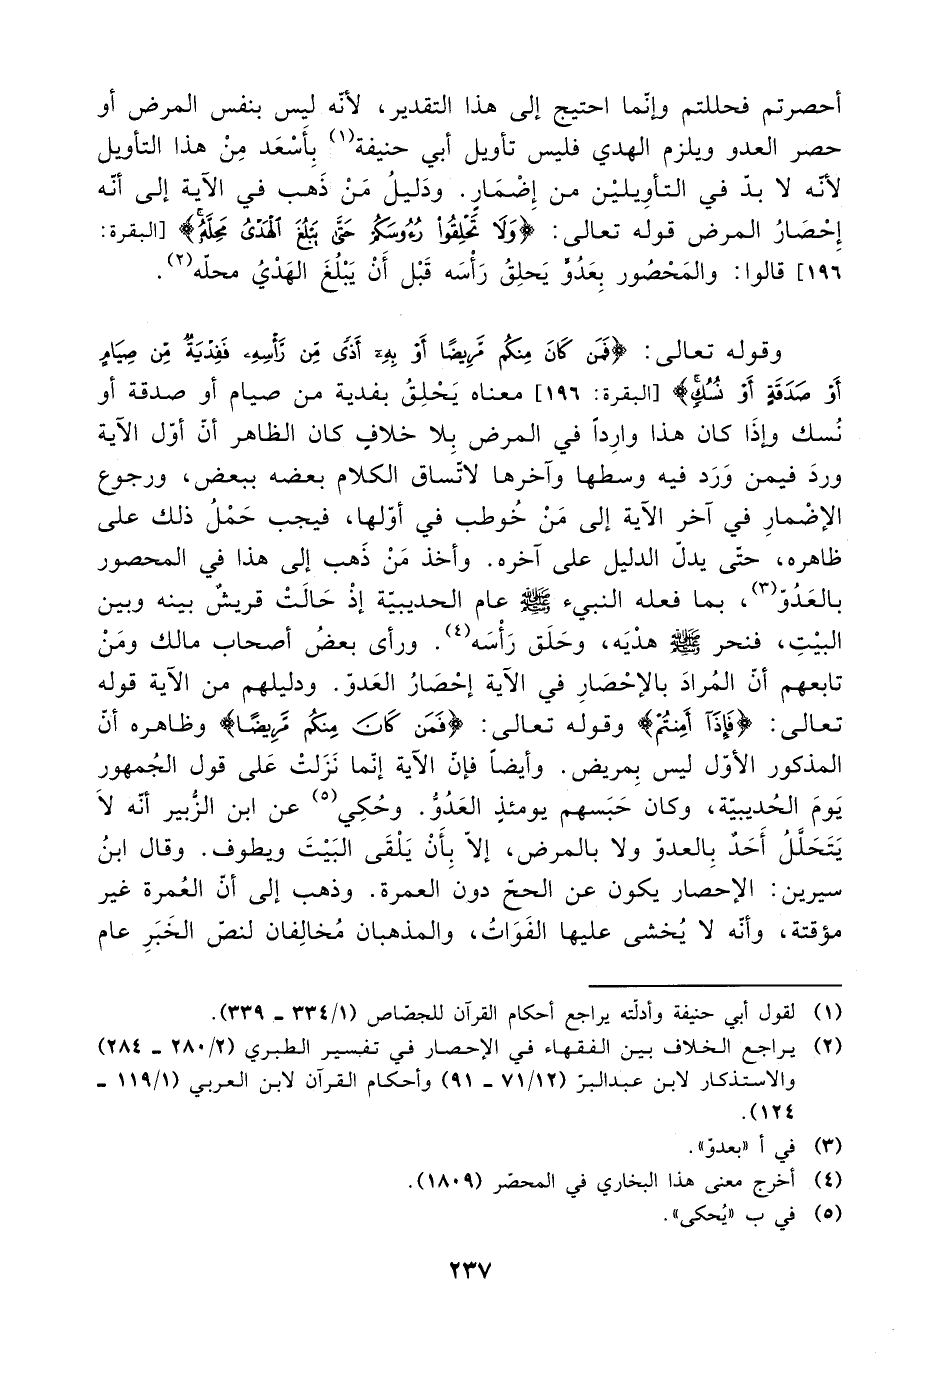 أحصرتم فحللتم وإنّما احتيج إلى هذا التقدير، لأنّه ليس بنفس المرض أو
حصر العدو ويلزم الهدي فليس تأويل أبي حنيفة(١) بِأَسْعَد مِنْ هذا التأويل
لأنّه لا بدّ في التأويليْن من إضْمَارٍ. ودَليلُ مَنْ ذَهب في الآية إلى أنّه
إحْصَارُ المرض قوله تعالى: ﴿وَلَا تَحْلِقُوا۟ رُءُوسَكُمْ حَتَّىٰ يَبْلُغَ ٱلْهَدْىُ مَحِلَّهُۥ﴾ [البقرة:
١٩٦] قالوا: والمَحْصُور بِعَدُوٍّ يَحلِق رَأْسَه قَبْل أَنْ يَبْلُغَ الهَدْيُ محلّه(٢).
وقوله تعالى: ﴿فَمَن كَانَ مِنكُم مَّرِيضًا أَوْ بِهِۦٓ أَذًى مِّن رَّأْسِهِۦ فَفِدْيَةٌ مِّن صِيَامٍ
أَوْ صَدَقَةٍ أَوْ نُسُكٍ﴾ [البقرة: ١٩٦] معناه يَحْلِقُ بفدية من صيام أو صدقة أو
نُسك وإذَا كان هذا وارِداً في المرض بِلا خلافٍ كان الظاهر أنّ أوّل الآية
وردَ فيمن وَرَد فيه وسطها وآخرها لاتّساق الكلام بعضه ببعض، ورجوع
الإضْمارِ في آخر الآية إلى مَنْ خُوطب في أوّلها، فيجب حَمْلُ ذلك على
ظاهره، حتّى يدلّ الدليل على آخره. وأخذ مَنْ ذَهب إلى هذا في المحصور
بالعَدُوّ(٣)، بما فعله النبيء ﷺ عام الحديبيّة إذْ حَالَتْ قريشٌ بينه وبين
البيْتِ، فنحر ﷺ هدْيَه، وحَلَق رَأْسَه(٤). ورأى بعضُ أصحاب مالك ومَنْ
تابعهم أنّ المُرادَ بالإحْصَارِ في الآية إحْصَارُ العَدوّ. ودليلهم من الآية قوله
تعالى: ﴿فَإِذَآ أَمِنتُمْ﴾ وقوله تعالى: ﴿فَمَن كَانَ مِنكُم مَّرِيضًا﴾ وظاهره أنّ
المذكور الأوّل ليس بِمريض. وأيضاً فإنّ الآية إنّما نَزَلتْ عَلى قول الجُمهور
يَومَ الحُديبيّة، وكان حَبَسهم يومئذٍ العَدُوُّ. وحُكِي(٥) عن ابن الزُّبير أنّه لاَ
يَتَحَلَّلُ أَحَدٌ بِالعدوّ ولا بالمرض، إلاّ بِأَنْ يَلْقَى البَيْتَ ويطوف. وقال ابنُ
سيرين: الإحصار يكون عن الحجّ دون العمرة. وذهب إلى أنّ العُمرة غير
مؤقتة، وأنّه لا يُخشى عليها الفَوَاتُ، والمذهبان مُخالِفان لنصّ الخَبَرِ عام
(١) لقول أبي حنيفة وأدلّته يراجع أحكام القرآن للجصّاص (٣٣٤/١ ـ ٣٣٩).
(٢) يراجع الخلاف بين الفقهاء في الإحصار في تفسير الطبري (٢٨٠/٢ ـ ٢٨٤)
والاستذكار لابن عبدالبرّ (٧١/١٢ ـ ٩١) وأحكام القرآن لابن العربي (١١٩/١ ـ
١٢٤).
(٣) في أ «بعدوّ».
(٤) أخرج معنى هذا البخاري في المحصّر (١٨٠٩).
(٥) في ب «يُحكى».
٢٣٧